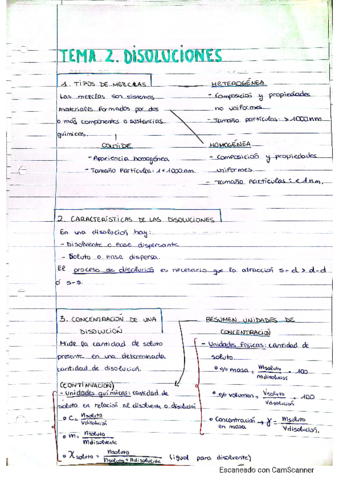 TEMA 2. DISOLUCIONES
1. TIPOS DE MEZCLAS
Las mezclas son sistemas
materiales formados por dos
o más componentes o sustancias
químicas.
HETEROGÉNEA
- Composición y propiedades
no uniformes
- Tamaño partículas > 1000nm
COLOIDE
- Apariencia homogénea
- Tamaño Partículas: 1 - 1000nm
HOMOGÉNEA
- Composición y propiedades
uniformes
- Tamaño Partículas: < 1nm.
2. CARACTERÍSTICAS DE LAS DISOLUCIONES
En una disolución hay:
- Disolvente o fase dispersante
- Soluto o fase dispersa.
El proceso de disolución es necesario que la atracción s-d > d-d
ó s-s.
3. CONCENTRACIÓN DE UNA
DISOLUCIÓN
Mide la cantidad de soluto
presente en una determinada
cantidad de disolución.
(CONTINUACIÓN)
- Unidades químicas: cantidad de
soluto en relación al disolvente o disolución
• C = nsoluto / Vdisolución
• m = nsoluto / Mdisolvente
• X soluto = nsoluto / nsoluto + ndisolvente (igual para disolvente)
RESUMEN UNIDADES DE
CONCENTRACIÓN
- Unidades físicas: cantidad de
soluto.
• % masa = Msoluto / Mdisolución . 100
• % volumen = Vsoluto / Vdisolución . 100
• Concentración en masa → γ = Msoluto / Vdisolución
Escaneado con CamScanner